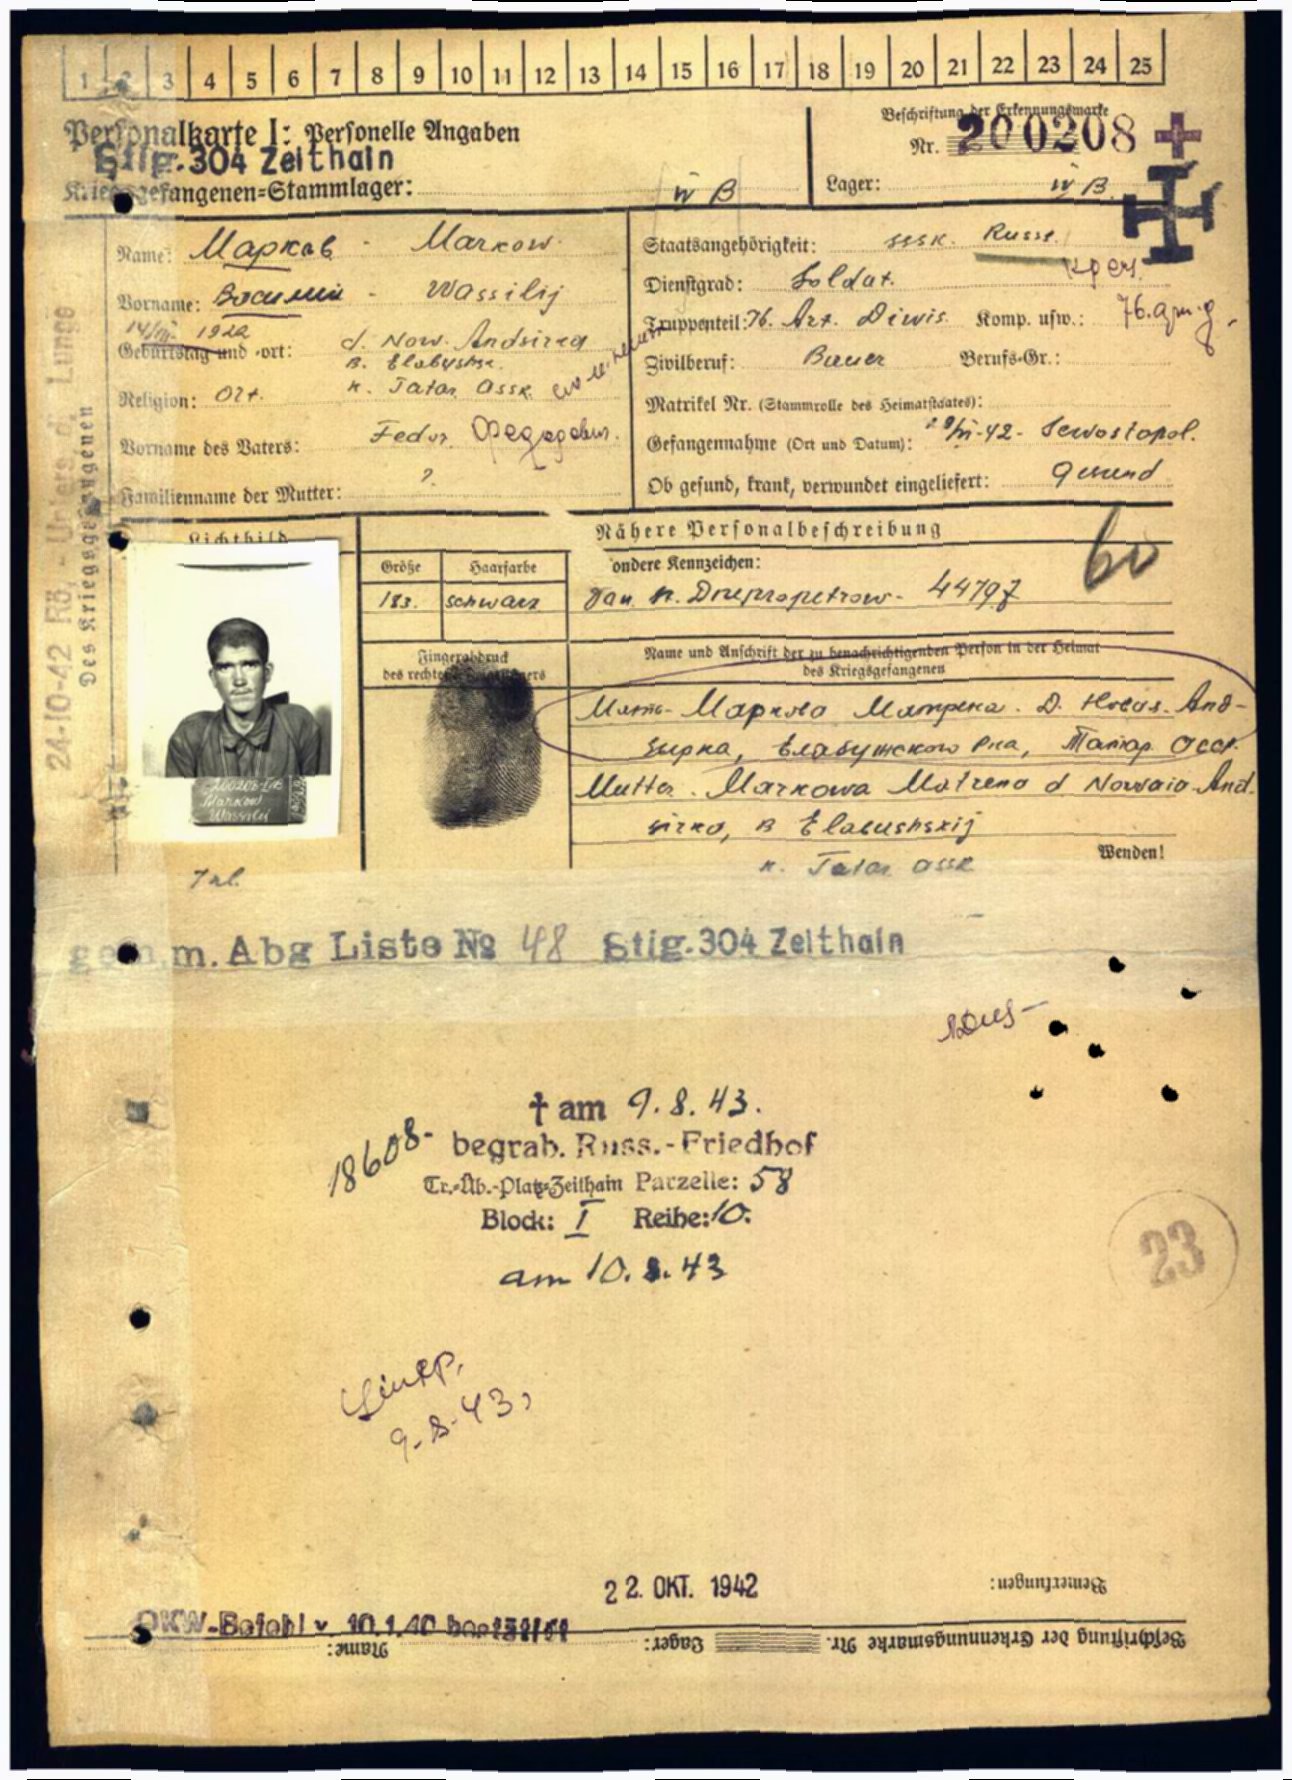 1 2 3 4 5 6 7 8 9 10 11 12 13 14 15 16 17 18 19 20 21 22 23 24 25
Personalkarte I: Personelle Angaben
Stlg. 304 Zeithain
Kriegsgefangenen-Stammlager: IV B
Beschriftung der Erkennungsmarke
Nr. 200208
Lager: IV B
Name: Марков - Markow
Vorname: Василий - Wassilij
1922
Geburtstag und -ort: d. Now. Andsirka
R. Elabyshsk.
Religion: Ort. K. Tatar. ASSR.
Vorname des Vaters: Fedor
Familienname der Mutter: ?
Staatsangehörigkeit: SSSR. Russe.
Dienstgrad: Soldat.
Truppenteil: 76. Art. Diwis. Komp. usw.:
Zivilberuf: Bauer Berufs-Gr.:
Matrikel Nr. (Stammrolle des Heimatstaates):
Gefangennahme (Ort und Datum): Sewostopol.
Ob gesund, krank, verwundet eingeliefert: Gesund
24-10-42 Rö.-Unters. d. Lunge
Des Kriegsgefangenen
Lichtbild
200208 IVB
Markow
Wassilij
Nähere Personalbeschreibung
Größe Haarfarbe
183. schwarz
ondere Kennzeichen:
Dnepropetrow- 44797
60
Fingerabdruck
des rechten Zeigefingers
Name und Anschrift der zu benachrichtigenden Person in der Heimat
des Kriegsgefangenen
Мать- Маркова Матрена. Д. Новая. Анд-
зирка, Елабужского р-на, Татар. АССР.
Mutter. Markowa Matrena d Nowaia-And.
sirka, R Elabushskij
K. Tatar ASSR
Wenden!
m. Abg Liste № 48 Stlg. 304 Zeithain
† am 9. 8. 43.
18608-
begrab. Russ.-Friedhof
Tr.-Üb.-Platz-Zeithain Parzelle: 58
Block: I Reihe: 10.
am 10. 8. 43
23
9. 8. 43
22. OKT. 1942
Bemerkungen:
OKW-Befehl v. 10.1.40 bestätigt
Name: Lager: Beschriftung der Erkennungsmarke Nr.